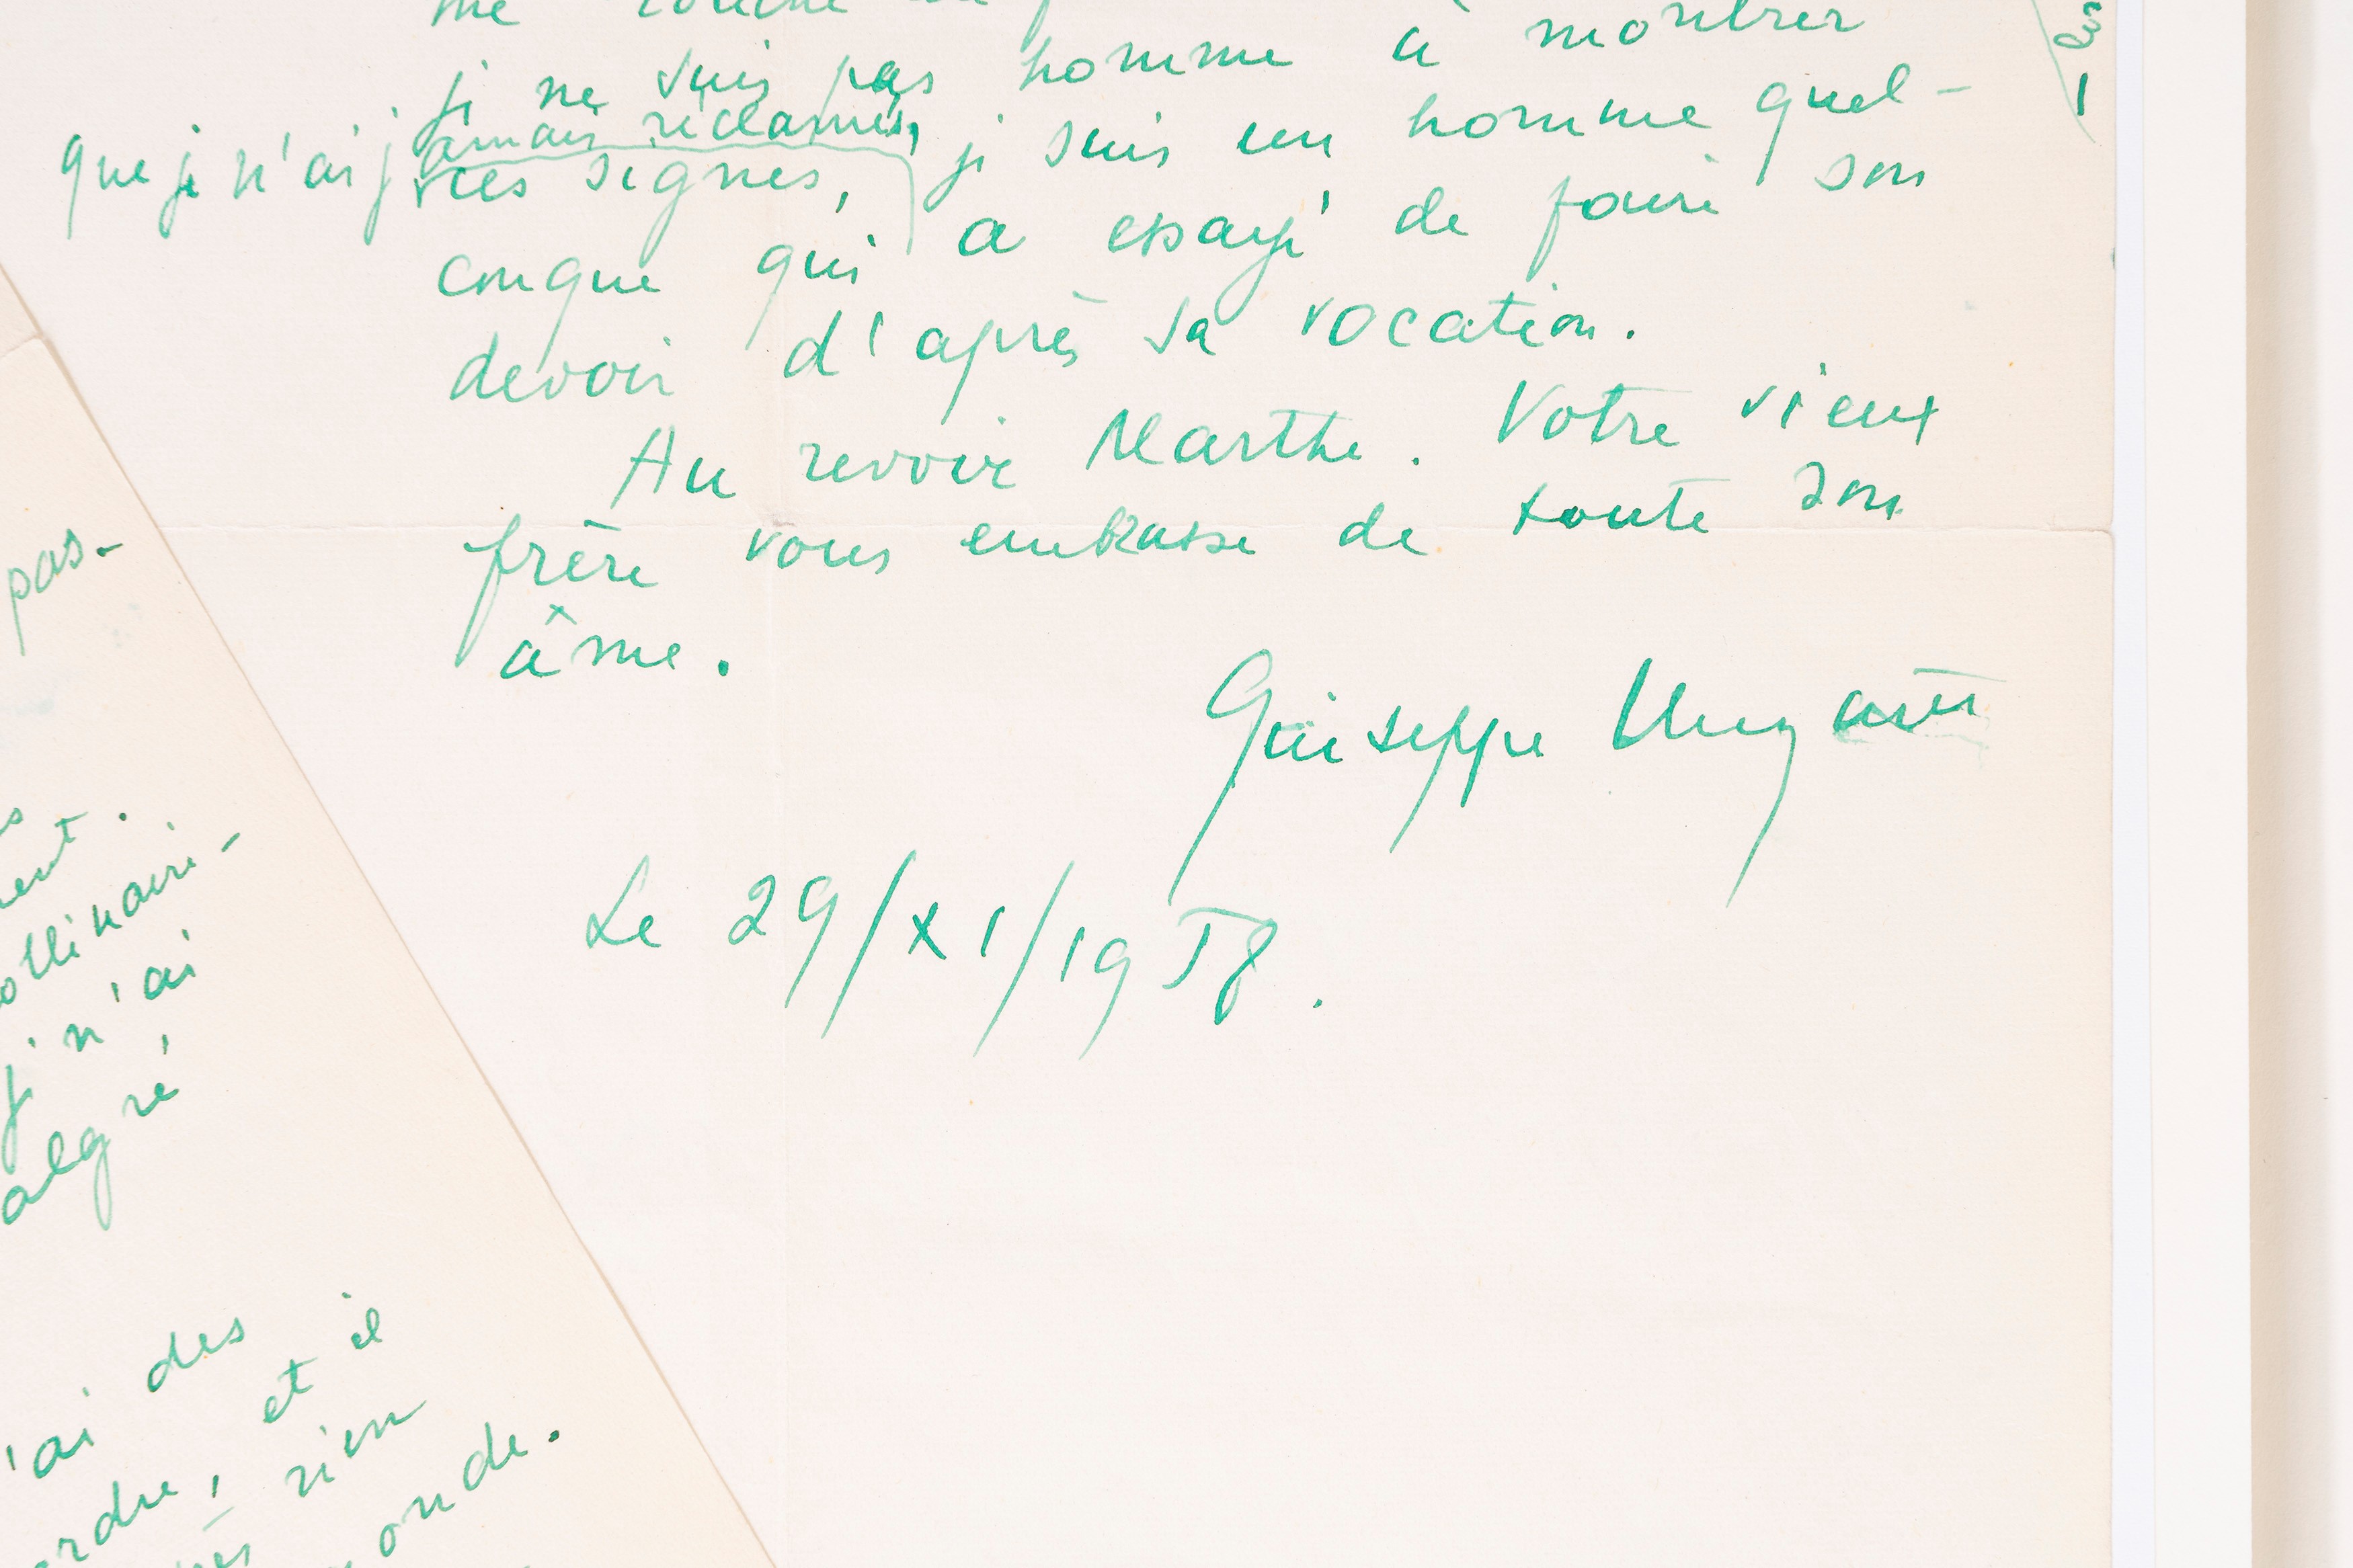 me
je ne suis pas homme à montrer
que je n'ai jamais réclamés,
ces signes, je suis un homme quel-
conque qui a essayé de faire son
devoir d'après sa vocation.
Au revoir Marthe. Votre vieux
frère vous embrasse de toute son
âme.
Giuseppe Ungaretti
Le 29/XI/1958.
pas-
ollinaire-
j. n'ai
algré
'ai des
et il
rien
onde.